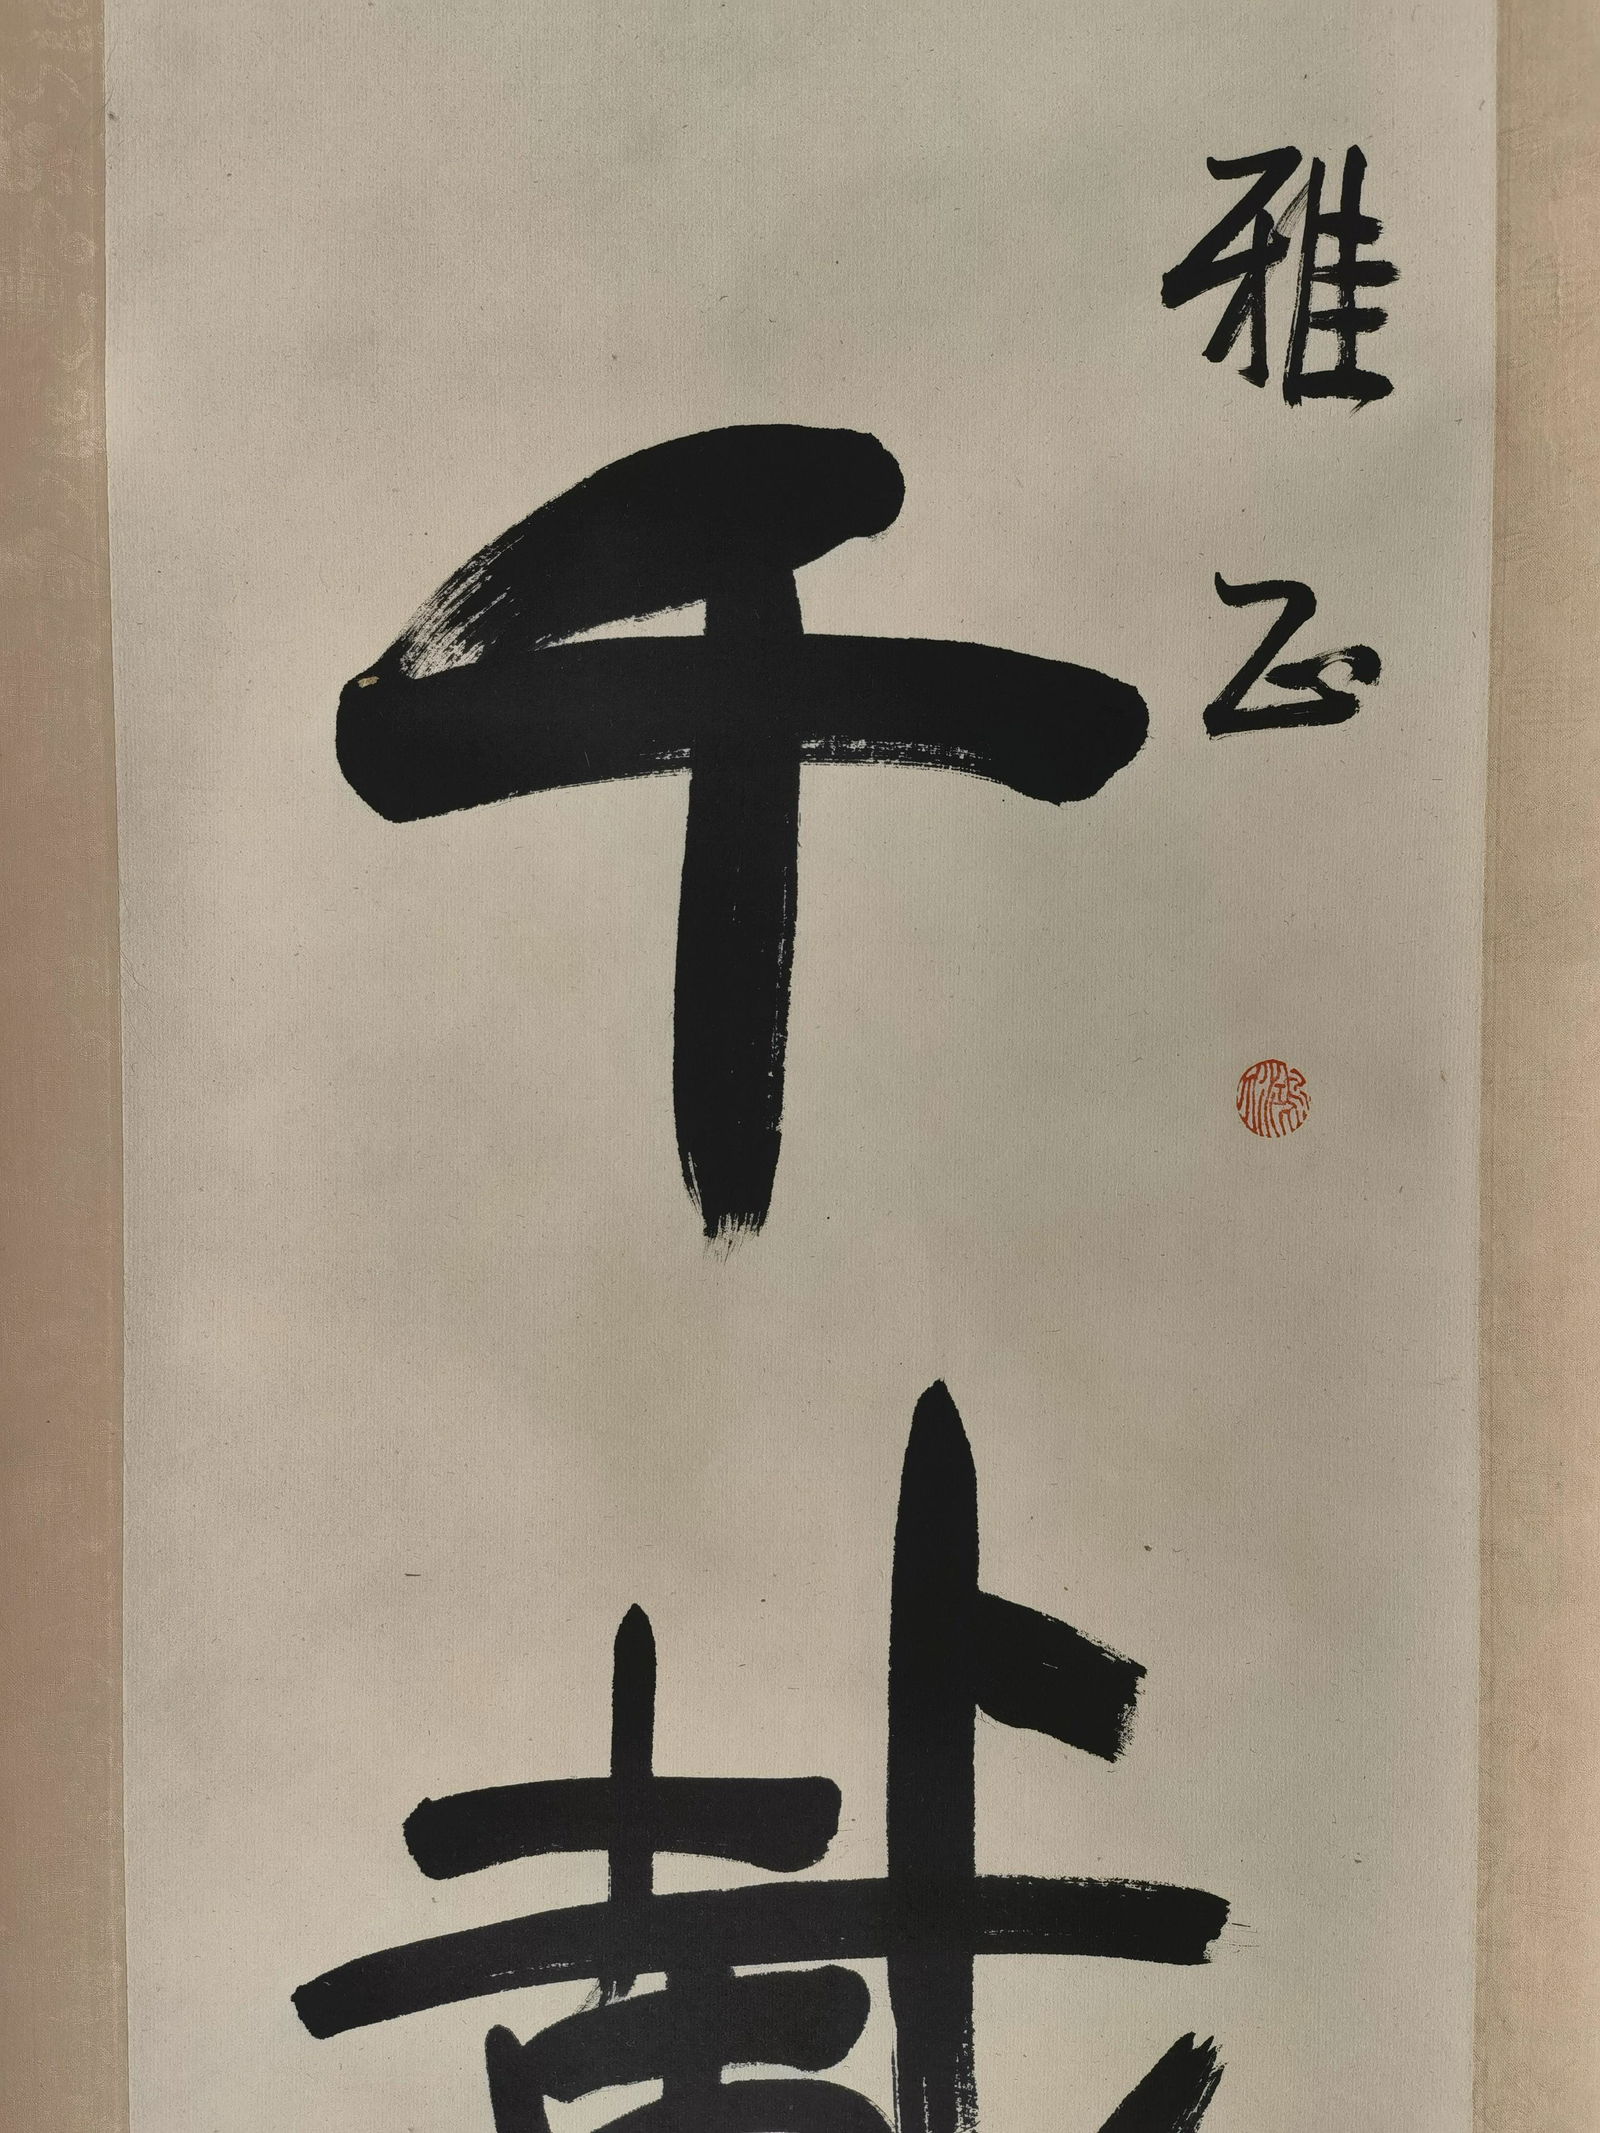 雅正
千載